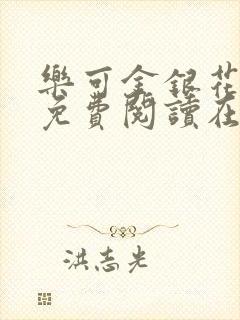 樂可金銀花
免費閱讀在
洪志光